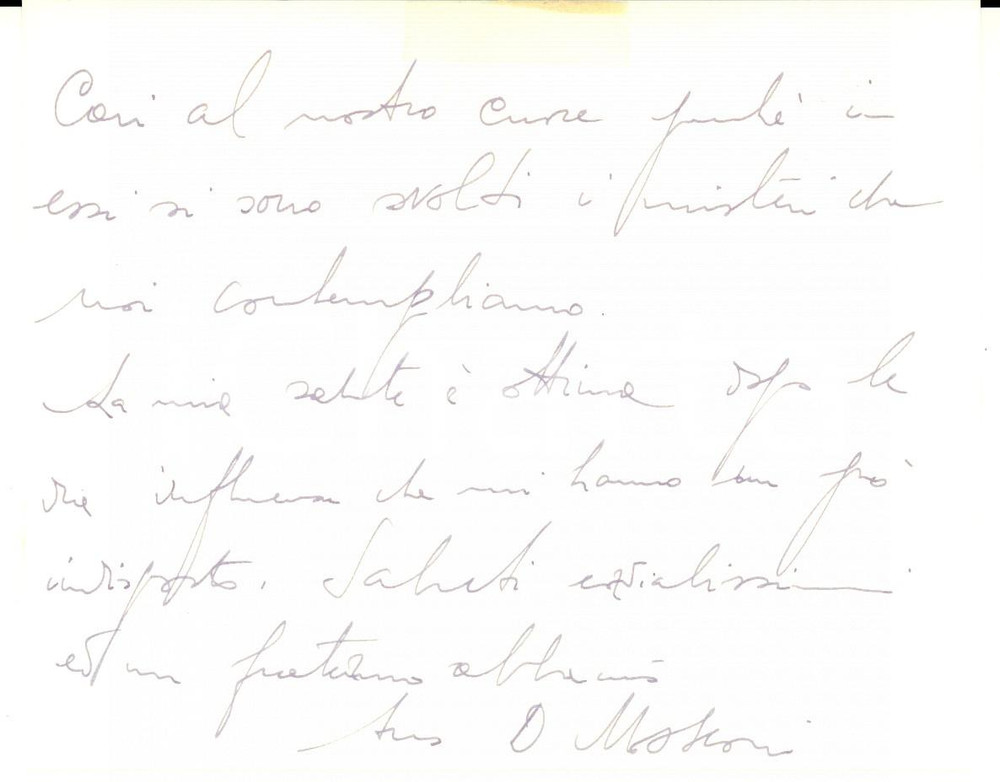 Cari al nostro cuore perché in
essi si sono svolti i misteri che
noi contempliamo.
La mia salute è ottima dopo le
due influenze che mi hanno un pò
indisposto. Saluti cordialissimi
ed un fraterno abbraccio
Suo D